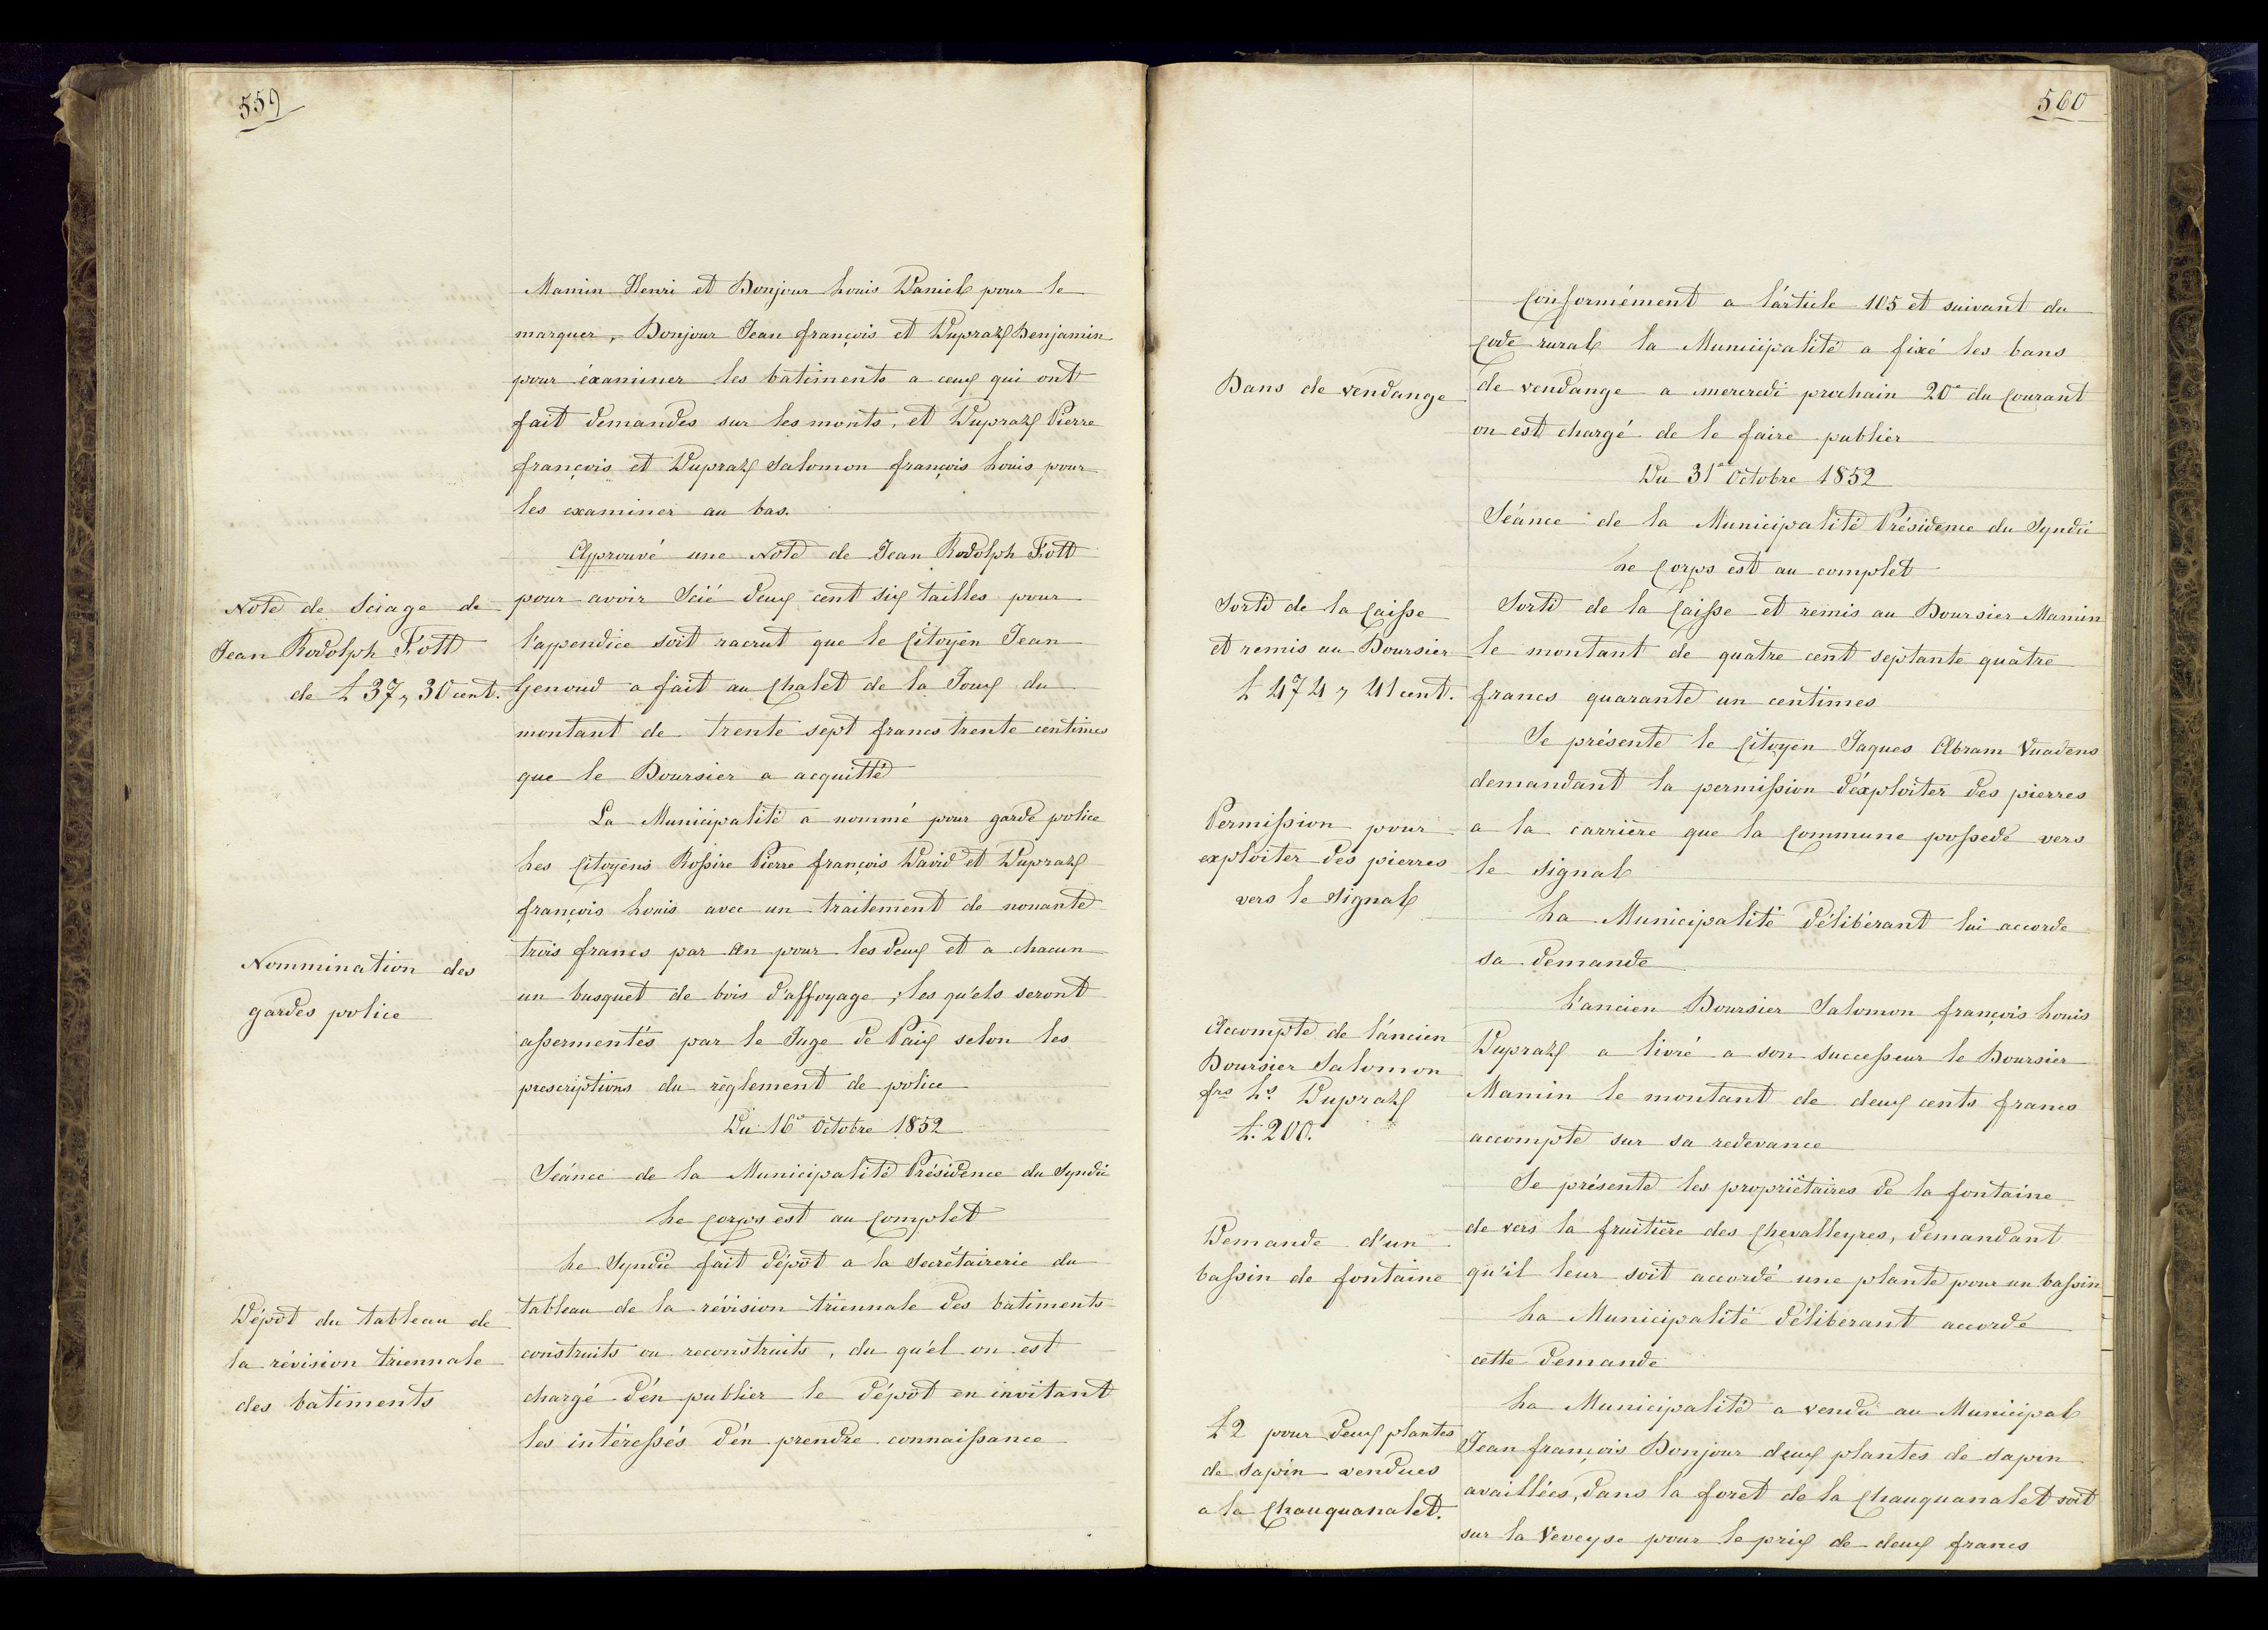 559
Mamin Henri et Bonjour Louis Daniel pour le
marquer, Bonjour Jean françois et Dupraz Benjamin
pour éxaminer les batiments a ceux qui ont
fait demandes sur les monts, et Dupraz Pierre
françois et Dupraz Salomon françois Louis pour
les examiner au bas.
Approuvé une Note de Jean Rodolph
Note de Sciage de
Jean Rodolph
de L 37, 30 cent.
pour avoir Scié deux cent six tailles pour
l'appendice soit racrut que le Citoyen Jean
Genoud a fait au Chalet de la Joux du
montant de trente sept francs trente centimes
que le Boursier a acquitté
La Municipalité a nommé pour garde police
Les Citoyens Rossire Pierre françois David et Dupraz
françois Louis avec un traitement de nonante
Nommination des
gardes police
trois francs par An pour les deux et a chacun
un busquet de bois d'affoyage, les qu'els seront
assermentés par le Juge de Paix selon les
prescriptions du règlement de police
Du 16e Octobre 1852
Séance de la Municipalité Présidence du Syndic
Le Corps est au Complet
Le Syndic fait dépôt a la Secrétairerie du
Dépôt du tableau de
la révision triennale
des batiments
tableau de la révision triennale des batiments
construits ou reconstruits, du qu'él on est
chargé d'én publier le dépôt en invitant
les intéressés d'én prendre connaissance
560
Conformément a l'article 105 et suivant du
Code rural la Municipalité a fixé les bans
Bans de vendange
de vendange a mercredi prochain 20e du Courant
on est chargé de le faire publier
Du 31e Octobre 1852
Séance de la Municipalité Présidence du Syndic
Le Corps est au complet
Sorti de la Caisse
et remis au Boursier
L 474, 41 cent.
Sorti de la Caisse et remis au Boursier Mamin
le montant de quatre cent septante quatre
francs quarante un centimes
Se présente le Citoyen Jaques Abram Vuadens
demandant la permission d'éxploiter des pierres
Permission pour
exploiter des pierres
vers le Signal
a la carrière que la Commune possede vers
le signal
La Municipalité délibérant lui accorde
sa demande
L'ancien Boursier Salomon françois Louis
Accompte de l'áncien
Boursier Salomon
frs Ls Dupraz
L. 200.
Dupraz a livré a son successeur le Boursier
Mamin le montant de deux cents francs
accompte sur sa redevance
Se présente les propriétaires de la fontaine
Demande d'un
bassin de fontaine
de vers la fruitière des Chevalleyres, demandant
qu'il leur soit accordé une plante pour un bassin
La Municipalité délibérant accorde
cette demande
La Municipalité a vendu au Municipal
L 2 pour deux plantes
de sapin vendues
a la Chauquanalet.
Jean françois Bonjour deux plantes de sapin
availlées, dans la foret de la Chauquanalet soit
sur la Veveyse pour le prix de deux francs